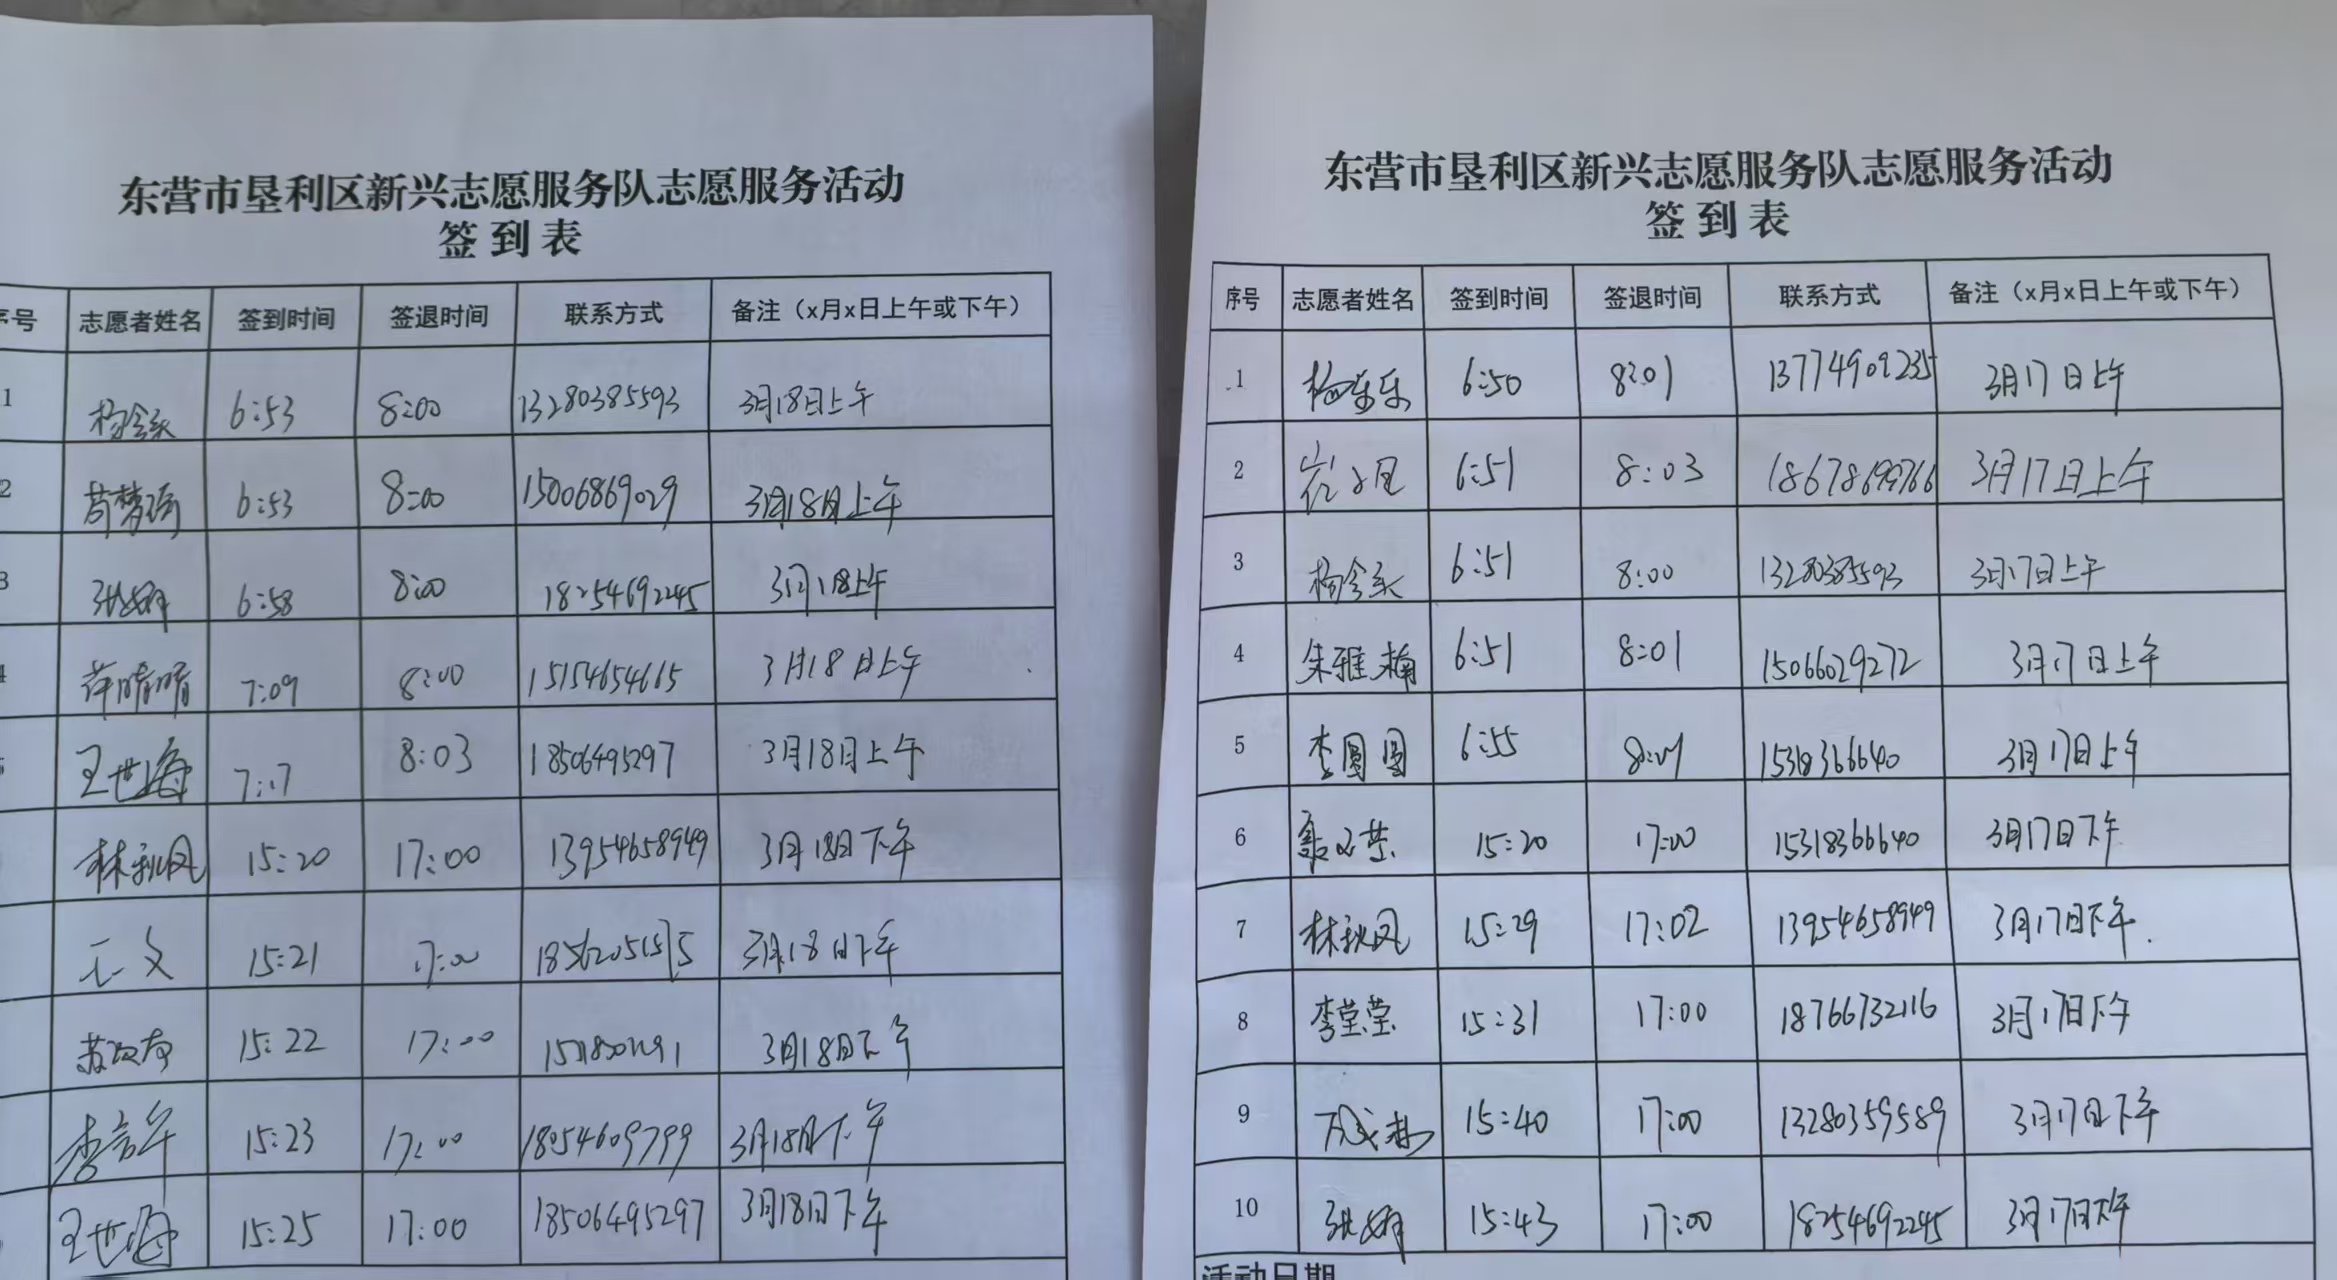 东营市垦利区新兴志愿服务队志愿服务活动
签到表
序号 志愿者姓名 签到时间 签退时间 联系方式 备注（x月x日上午或下午）
1 6:53 8:00 13280385593 3月18日上午
2 苟梦瑶 6:53 8:00 15006869029 3月18日上午
3 张娟 6:58 8:00 18254692245 3月18上午
薛晴晴 7:09 8:00 15154654615 3月18日上午
王世海 7:17 8:03 18506495297 3月18日上午
林秋风 15:20 17:00 13954658949 3月18日下午
15:21 17:00 18562051515 3月18日下午
15:22 17:00 3月18日下午
15:23 17:00 18054609799 3月18日下午
王世海 15:25 17:00 18506495297 3月18日下午
东营市垦利区新兴志愿服务队志愿服务活动
签到表
序号 志愿者姓名 签到时间 签退时间 联系方式 备注（x月x日上午或下午）
1 杨乐乐 6:50 8:01 3月17日上午
2 6:51 8:03 18678699766 3月17日上午
3 6:51 8:00 13280385593 3月17日上午
4 朱雅楠 6:51 8:01 15066029272 3月17日上午
5 李圆圆 6:55 3月17日上午
6 15:20 17:00 15318366640 3月17日下午
7 林秋风 15:29 17:02 13954658949 3月17日下午
8 李莹莹 15:31 17:00 18766732116 3月17日下午
9 15:40 17:00 13280359589 3月17日下午
10 张娟 15:43 17:00 18254692245 3月17日下午
活动日期